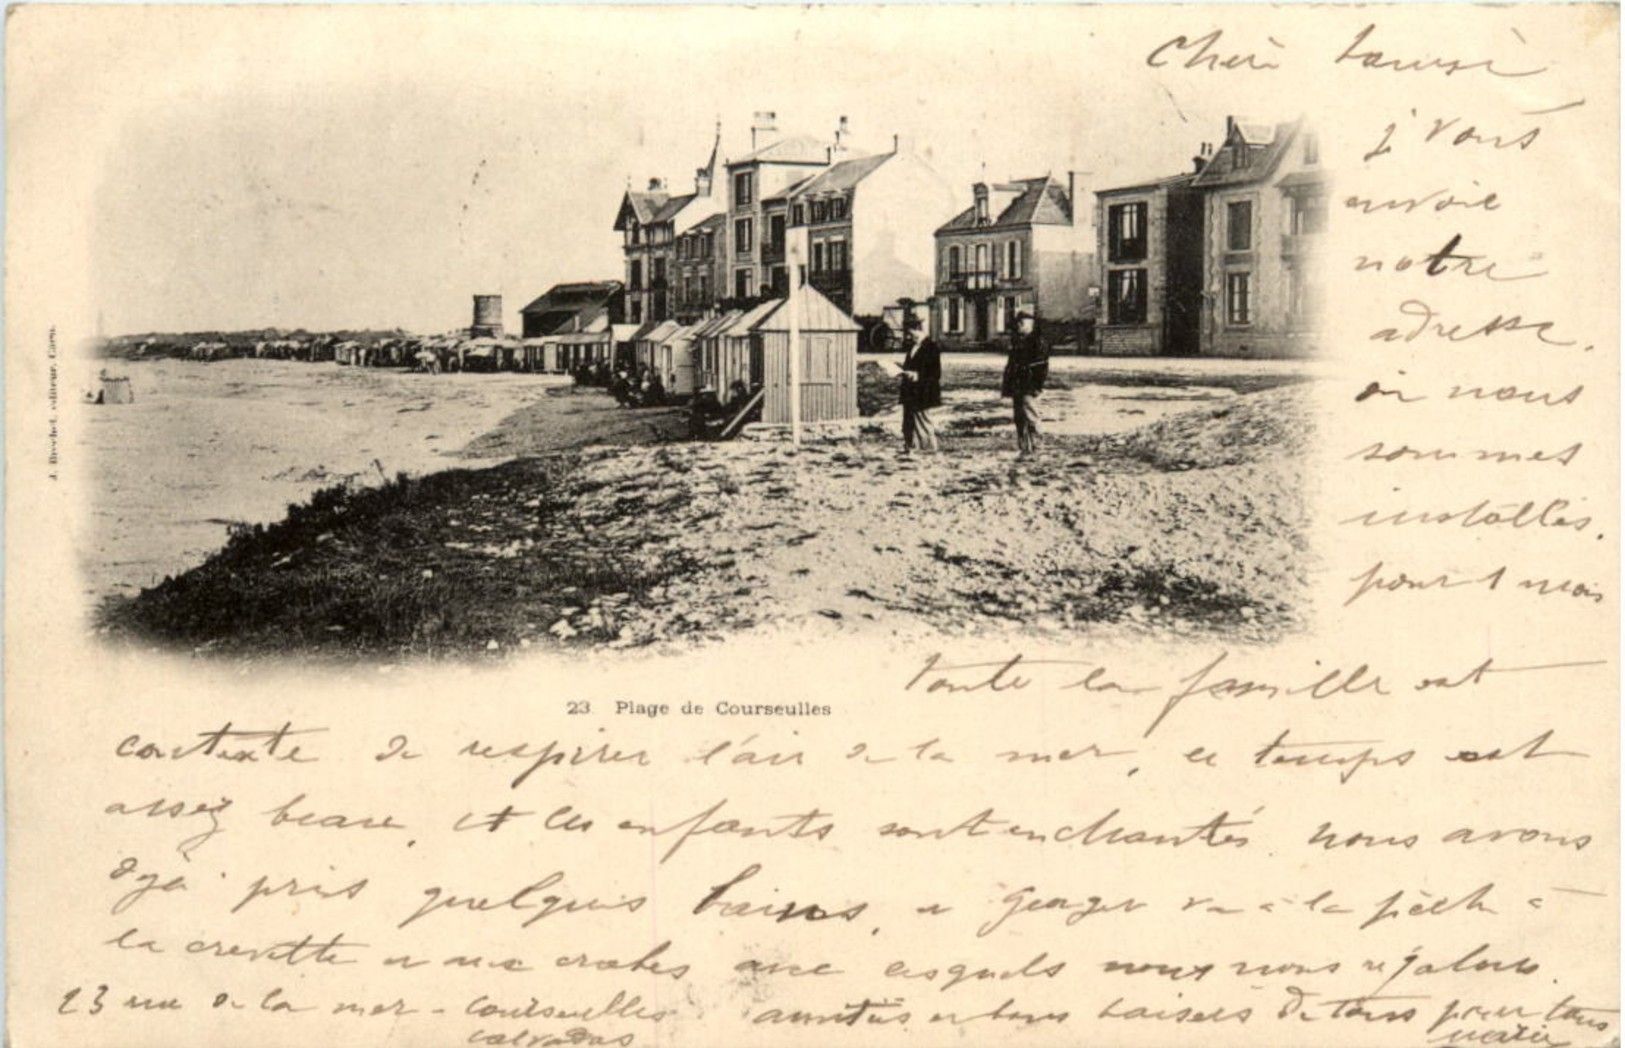 Chère Louise
j vous
envoie
notre
adresse.
où nous
sommes
installés.
pour 1 mois
J. Brechet, éditeur, Caen.
23 Plage de Courseulles
toute la famille est
contente de respirer l'air de la mer, le temps est
assez beau, et les enfants sont enchantés. nous avons
déjà pris quelques bains, et Georges va à la pêche à
la crevette et aux crabes avec lesquels nous nous régalons.
23 rue de la mer - Courseulles
Calvados
amitiés et bons baisers de tous pour tous
Marie